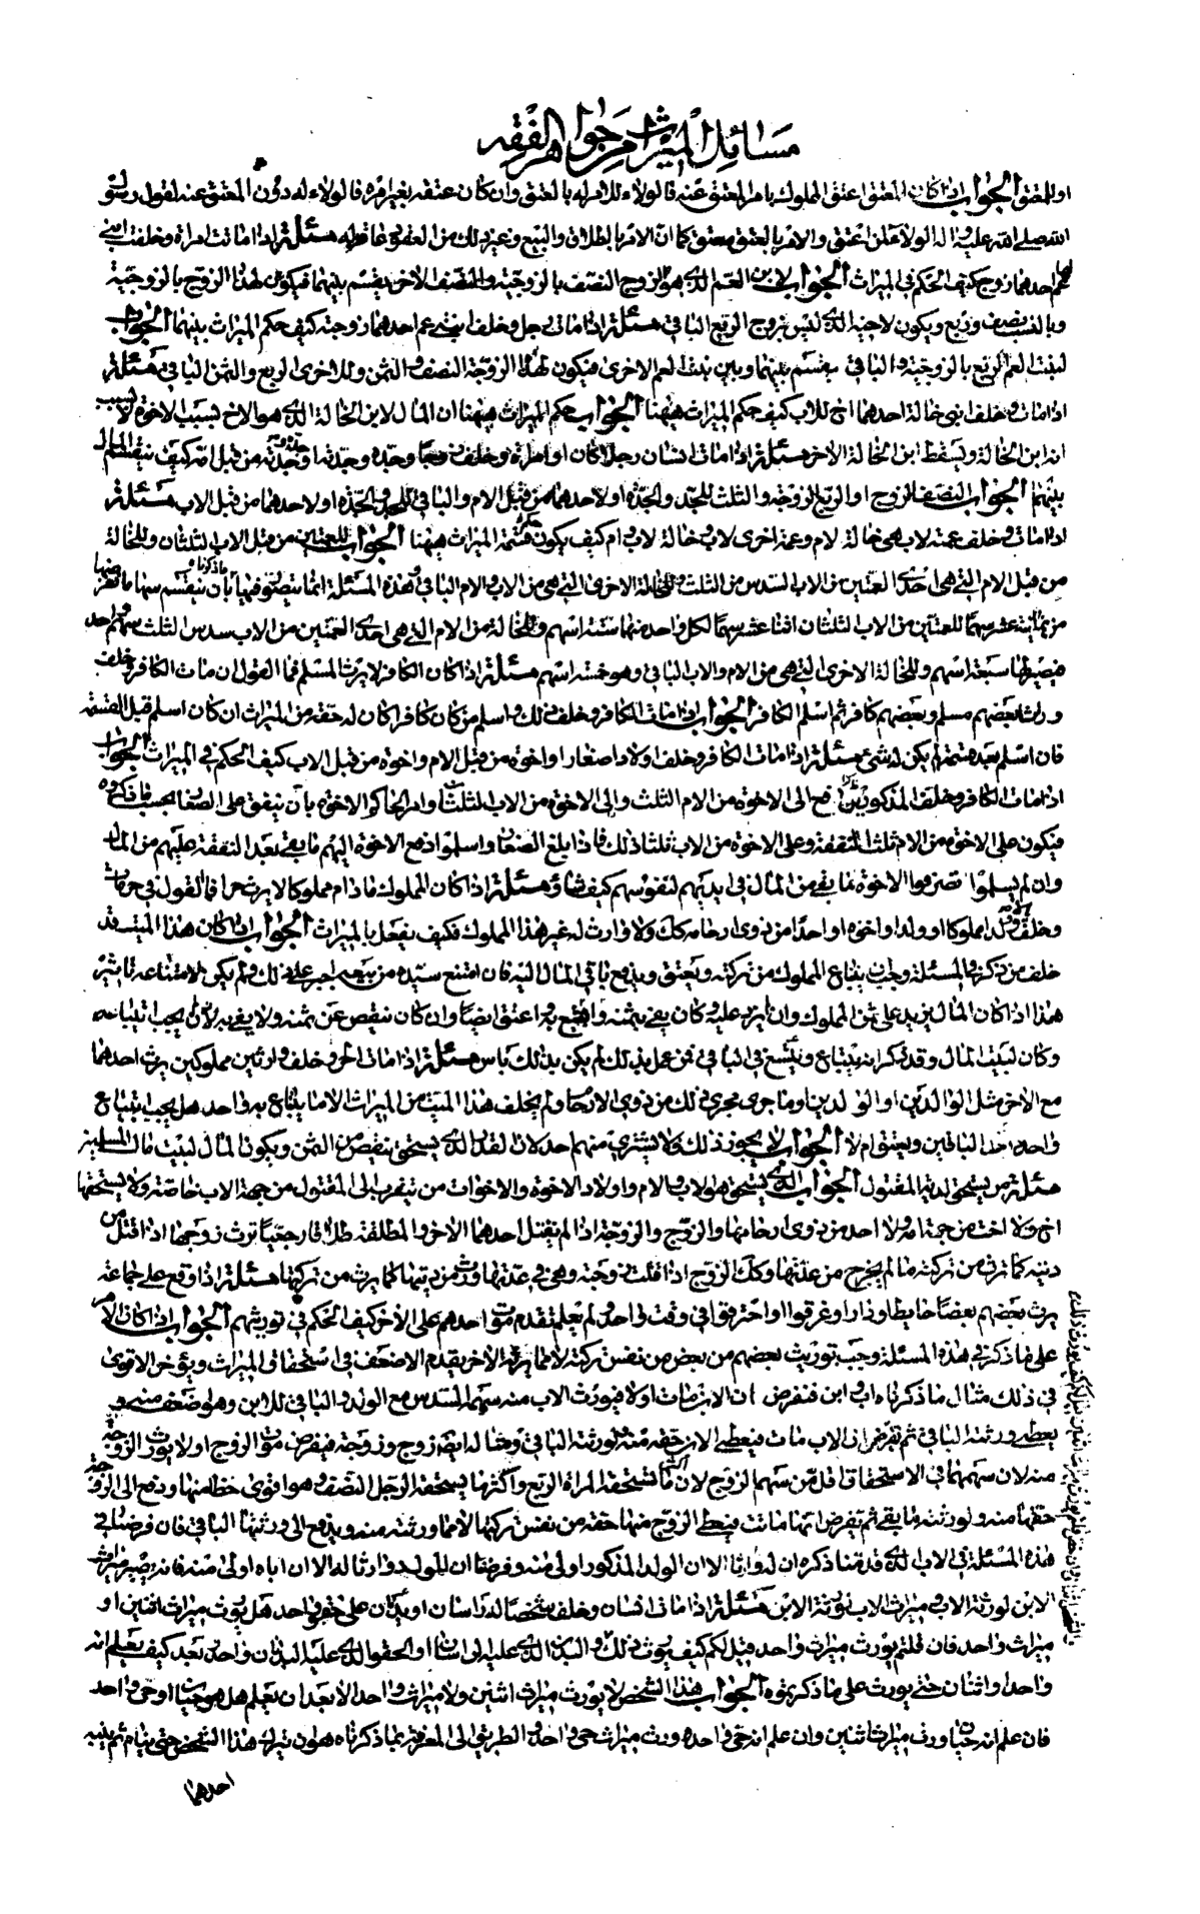 مسائل الميراث من جواهر الفقه
او للمعتق الجواب اذا كان المعتق اعتق المملوك بامر المعتق عنه فالولاء للامر له بالعتق وان كان عتقه بغير امره فالولاء له دون المعتق عنه لقول رسول
الله صلى الله عليه واله الولاء لمن اعتق والامر بالعتق معتق كما ان الامر بالطلاق والبيع وغير ذلك من العقود مسئلة اذا ماتت امراة وخلفت ابنى
عم احدهما زوج كيف الحكم في الميراث الجواب لابن العم الذي هو الزوج النصف بالزوجية والنصف الاخر يقسم بينهما فيكون لهذا الزوج بالزوجية
وبالنسب نصف وربع ويكون لاخيه الذي ليس بزوج الربع الباقي مسئلة اذا مات رجل وخلف ابنتي عم احدهما زوجته كيف حكم الميراث بينهما الجواب
لبنت العم الربع بالزوجية والباقي يقسم بينها وبين بنت العم الاخرى فيكون لهذه الزوجة النصف والثمن وللاخرى الربع والثمن الباقي مسئلة
اذا مات وخلف ابني خالة احدهما اخ للاب كيف حكم الميراث هيهنا الجواب حكم الميراث هيهنا ان المال لابن الخالة الذي هو الاخ بسبب الاخوة لا بسبب
انه ابن الخالة ويسقط ابن الخالة الاخر مسئلة اذا مات انسان رجلا كان او امراة وخلف زوجا وجده وجدته او جده وجدته من قبل امه كيف يقسم المال
بينهم الجواب النصف للزوج او الربع للزوجة والثلث للجد والجدة او لاحدهما من قبل الام والباقي للجد والجدة او لاحدهما من قبل الاب مسئلة
اذا مات وخلف عمته لاب هي خالة لام وعمة اخرى لاب وخالة لاب وام كيف يكون قسمة الميراث هيهنا الجواب للعمتين من قبل الاب الثلثان وللخالة
من قبل الام التي هي احدى العمتين من الاب السدس من الثلث وللخالة الاخرى التي هي من الاب والام الباقي وهذه المسئلة انما يتصور فيها ما ذكرناه بان يقسم سهامها
من ثمانية عشر سهما للعمتين من الاب الثلثان اثنا عشر سهما لكل واحد منهما ستة اسهم وللخالة من الام التي هي احدى العمتين من الاب سدس الثلث سهم واحد
فيصير لها سبعة اسهم وللخالة الاخرى التي هي من الام والاب الباقي وهو خمسة اسهم مسئلة اذا كان الكافر لا يرث المسلم فما القول ان مات الكافر وخلف
ورثة بعضهم مسلم وبعضهم كافر ثم اسلم الكافر الجواب اذا مات الكافر وخلف ذلك واسلم من كان كافرا كان له حقه من الميراث ان كان اسلم قبل القسمة
فان اسلم بعد قسمته لم يكن له شئ مسئلة اذا مات الكافر وخلف اولادا صغارا واخوة من قبل الام واخوة من قبل الاب كيف الحكم في الميراث الجواب
اذا مات الكافر وخلف المذكورين دفع الى الاخوة من الام الثلث والى الاخوة من الاب الثلثان وامر الحاكم الاخوة بان ينفق على الصغار بحسب ما ذكروه
فيكون على الاخوة من الام ثلث النفقة وعلى الاخوة من الاب ثلثا ذلك فاذا بلغ الصغار واسلموا دفع الاخوة اليهم ما بقى بعد النفقة عليهم من المال
وان لم يسلموا تصرفوا الاخوة بما بقى من المال في ايديهم لنفوسهم كيف شاؤ مسئلة اذا كان المملوك ما دام مملوكا لا يرث حرا فما القول في حر مات
وخلف ولدا مملوكا او والدا او اخوة او احدا من ذوى ارحامه كك ولا وارث له غير هذا المملوك فكيف يفعل بالميراث الجواب اذا كان هذا الميت قد
خلف من ذكر في المسئلة وجب ان يبتاع المملوك من تركته ويعتق ويدفع باقي المال اليه فان امتنع سيده من بيعه اجبر على ذلك ولم يكن لامتناعه تاثير
هذا اذا كان المال يزيد على ثمن المملوك وان لم يزد عليه وكان يفي بثمنه وابتيع به واعتق ايضا وان كان ينقص عن ثمنه ولا يفي به لا يجب ابتياعه
وكان لبيت المال وقد ذكر انه يبتاع ويستسعى في الباقي فمن عمل بذلك لم يكن بذلك باس مسئلة اذا مات الحر وخلف وارثين مملوكين يرث احدهما
مع الاخر مثل الوالدين او الولدين وما جرى مجرى ذلك من ذوى الارحام ولم يخلف هذا الميت من الميراث الا ما يبتاع به واحد هل يجب ابتياع
واحد احد الباقين ويعتق ام لا الجواب لا يجوز ذلك ولا يشترى منهم احد لان القدر الذي يستحق ينقص من الثمن ويكون المال لبيت مال المسلمين
مسئلة من يستحق لدية المقتول الجواب الذي يستحق هو الاب والام واولاد الاخوة والاخوات من يتقرب الى المقتول من جهة الاب خاصة ولا يستحقها
اخ ولا اخت من جهة امه ولا احد من ذوى ارحامها والزوج والزوجة اذا لم يقتل احدهما الاخر والمطلقة طلاقا رجعيا ترث زوجها اذا قتل من
ديته كما ترث من تركته ما لم يخرج من عدتها وكك الزوج اذا قتلت زوجته وهي في عدتها ورث من ديتها كما يرث من تركتها مسئلة اذا وقع على جماعة
يرث بعضهم بعضا حايط او دار او غرقوا او احترقوا في وقت واحد ولم يعلم تقدم موت احدهم على الاخر كيف الحكم في توريثهم الجواب اذا كان الامر
على ما ذكر في هذه المسئلة وجب توريث بعضهم من بعض من نفس تركته لا مما يرثه الاخر يقدم الاضعف في استحقاق الميراث ويؤخر الاقوى
في ذلك مثال ما ذكرناه اب وابن فنفرض ان الابن مات اولا فيورث الاب منه سهما السدس مع الولد والباقي للابن وهو اضعف منه و
يعطى ورثته الباقي ثم نفرض ان الاب مات فيعطى الابن حقه منه ولورثته الباقي ومثاله ايضا زوج وزوجة فيفرض موت الزوج اولا يورث الزوجة
منه لان سهمها في الاستحقاق اقل من سهم الزوج لان اكثر ما تستحقه المراة الربع واكثر ما يستحقه الرجل النصف وهو اقوى حظا منها ودفع الى الزوجة
حقها منه ولورثته ما بقى ثم نفرض انها ماتت فيعطى الزوج منها حقه من نفس تركتها لا مما ورثته منه ويدفع الى ورثتها الباقي فان فرضنا في
هذه المسئلة في الاب الذي قدمنا ذكره ان له وارثا الا ان الولد المذكور اولى منه وفرضنا ان للولد وارثا له الا ان اباه اولى منه فانه يصير ميراث
الابن لورثة الاب وميراث الاب لورثة الابن مسئلة اذا مات انسان وخلف شخصا له راسان او بدنان على حقو واحد هل يورث ميراث اثنين او
ميراث واحد فان قلتم يورث ميراث واحد قيل لكم كيف يورث ذلك والبدن الذي عليه الراسان او الحقو الذي عليه البدنان واحد بعد كيف يعلم انه
واحد او اثنان حتى يورث على ما ذكرتموه الجواب هذا الشخص لا يورث ميراث اثنين ولا ميراث واحد الا بعد ان يعلم هل هو حيان او حي واحد
فان علم انه حيان ورث ميراث اثنين وان علم انه حي واحد ورث ميراث حي واحد والطريق الى المعرفة بما ذكرناه هو ان يترك هذا الشخص حتى ينام ثم ينبه
احدهما